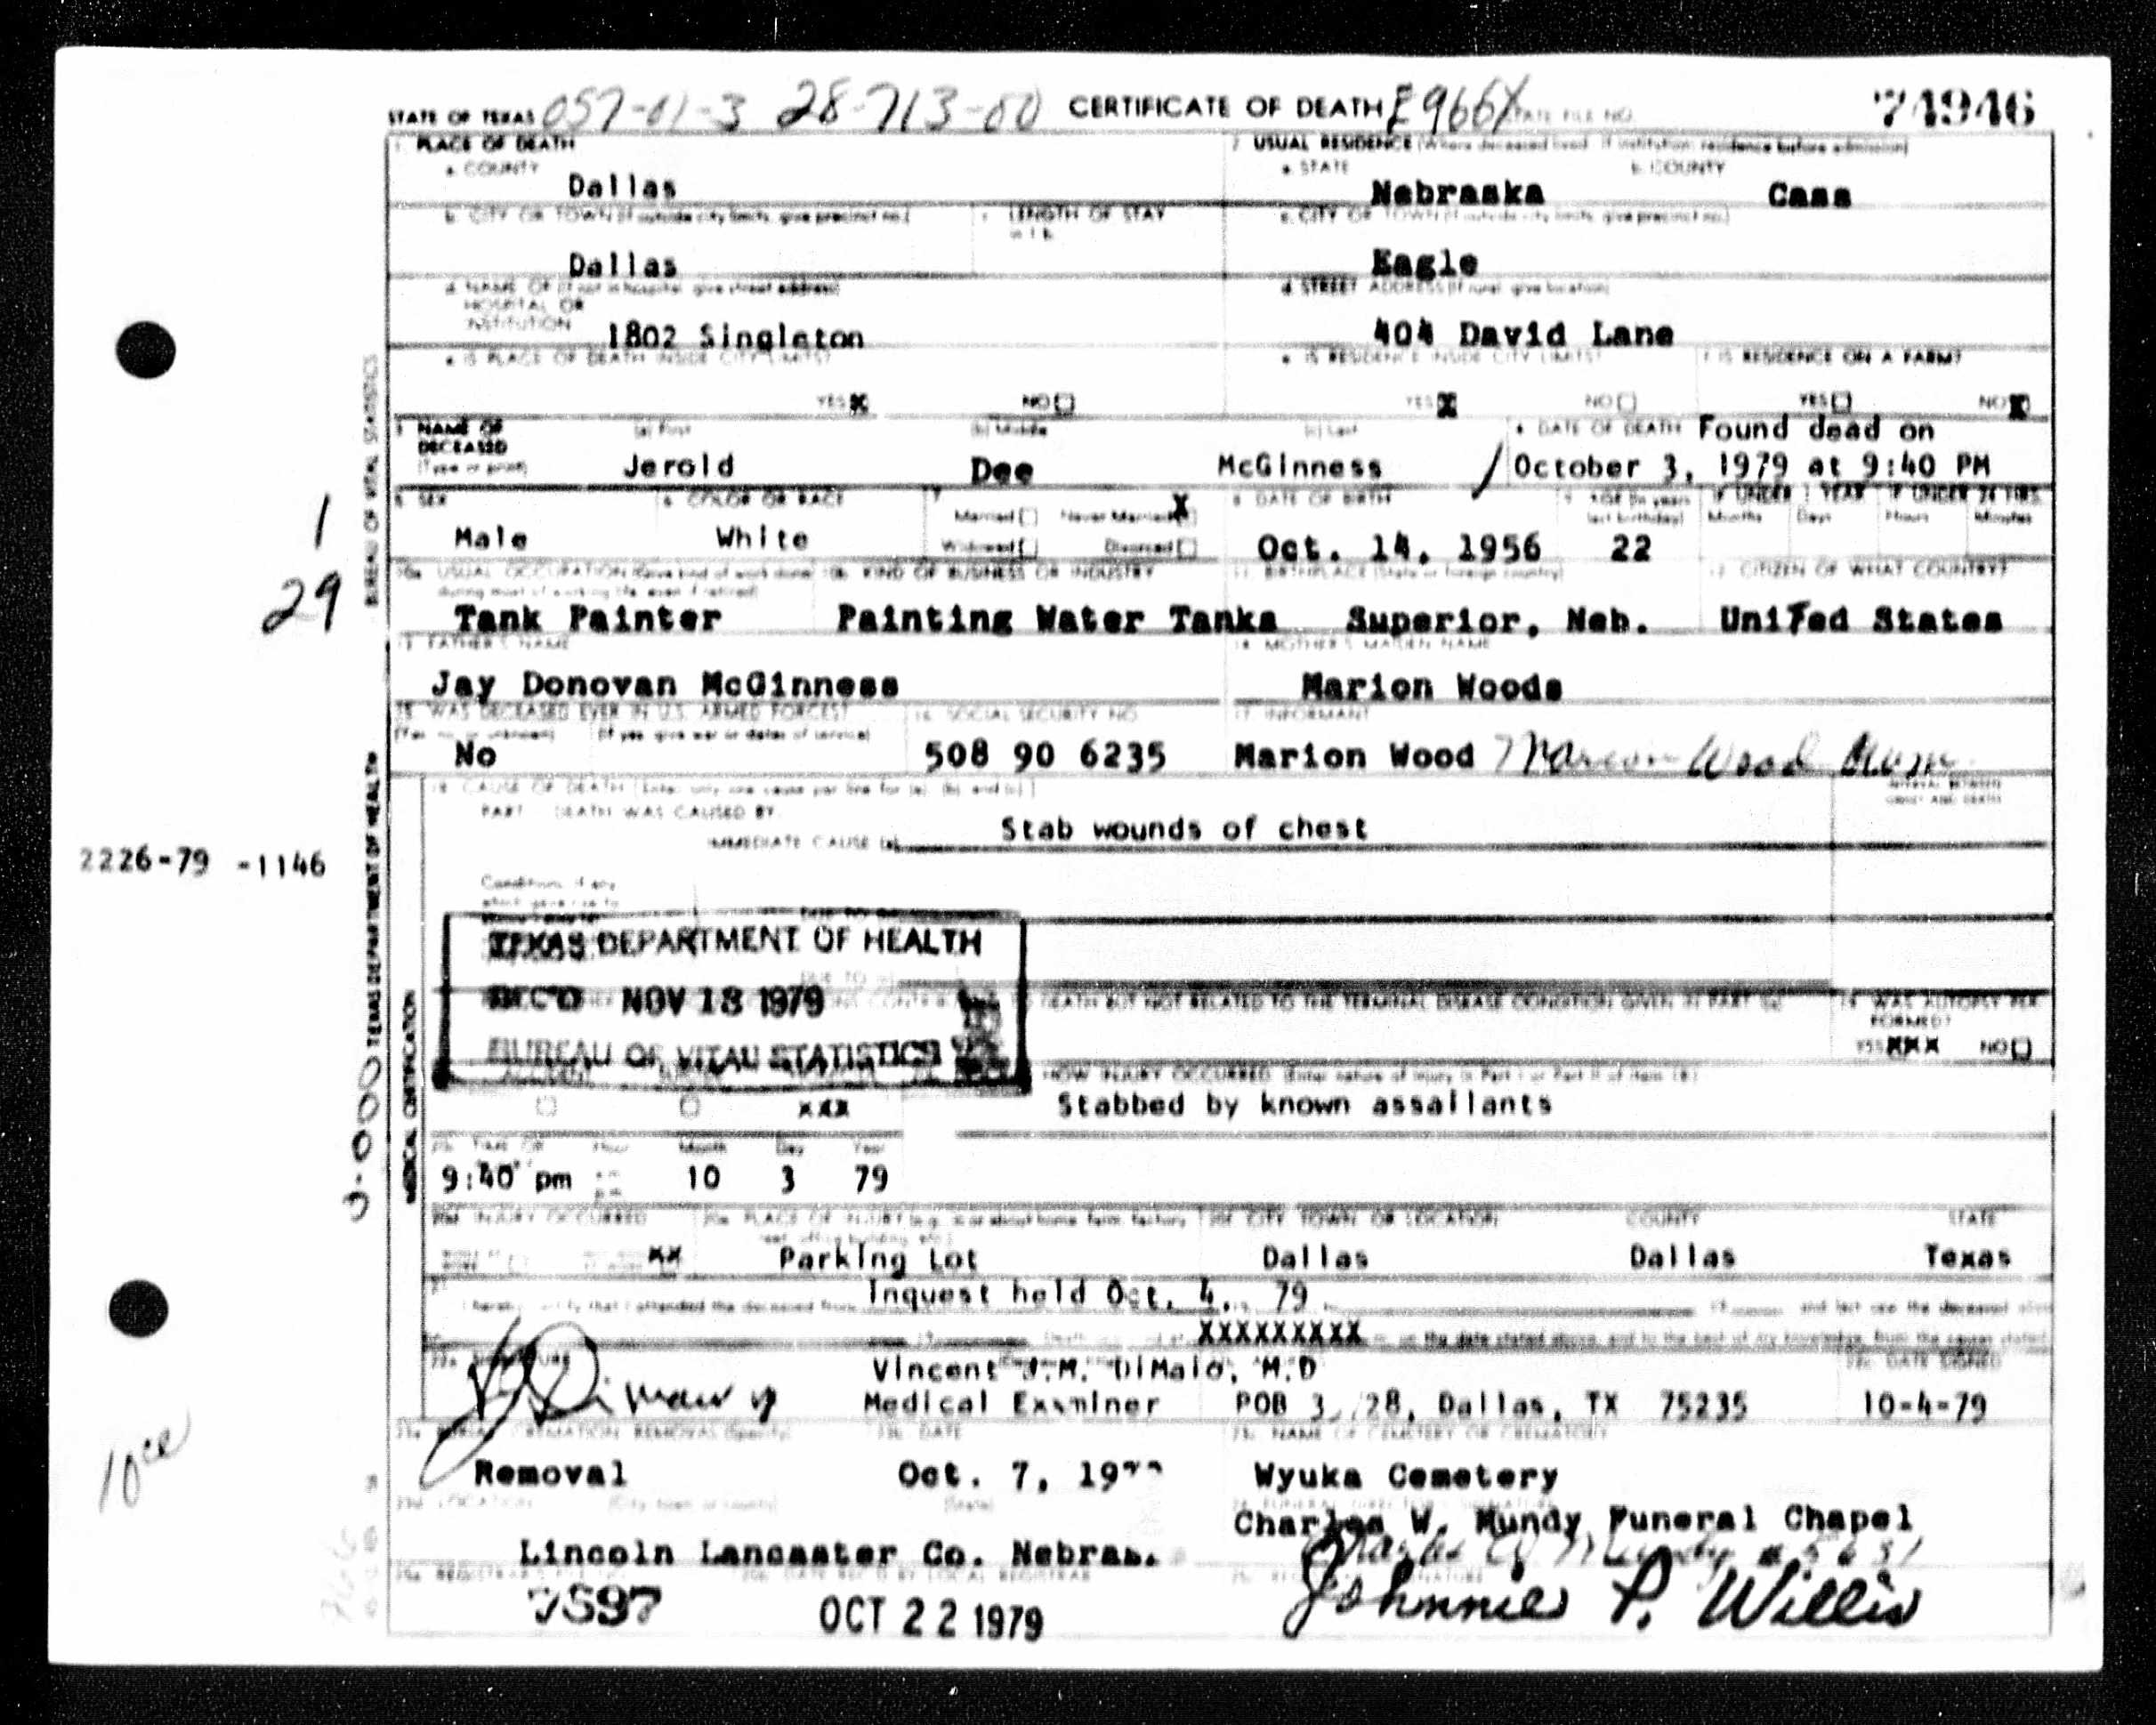 STATE OF TEXAS 057-01-3 28-713-00 CERTIFICATE OF DEATH E966X STATE FILE NO. 74946
1 PLACE OF DEATH
a. COUNTY
Dallas
2 USUAL RESIDENCE (Where deceased lived. If institution: residence before admission)
a. STATE b. COUNTY
Nebraska Cass
b. CITY OR TOWN (If outside city limits, give precinct no.) c. LENGTH OF STAY
in 1 b.
Dallas
c. CITY OR TOWN (If outside city limits, give precinct no.)
Eagle
d. NAME OF (If not in hospital, give street address)
HOSPITAL OR
INSTITUTION 1802 Singleton
d. STREET ADDRESS (If rural, give location)
404 David Lane
e. IS PLACE OF DEATH INSIDE CITY LIMITS?
YES X NO
e. IS RESIDENCE INSIDE CITY LIMITS? f. IS RESIDENCE ON A FARM?
YES X NO YES NO X
3 NAME OF
DECEASED
(Type or print)
(a) First (b) Middle (c) Last
Jerold Dee McGinness
4 DATE OF DEATH Found dead on
October 3, 1979 at 9:40 PM
5 SEX 6 COLOR OR RACE 7
Male White
Married Never Married X
Widowed Divorced
8 DATE OF BIRTH
Oct. 14, 1956
9 AGE (In years
last birthday)
22
IF UNDER 1 YEAR IF UNDER 24 HRS.
Months Days Hours Minutes
10a. USUAL OCCUPATION (Give kind of work done
during most of working life, even if retired)
10b. KIND OF BUSINESS OR INDUSTRY
11. BIRTHPLACE (State or foreign country)
12. CITIZEN OF WHAT COUNTRY?
Tank Painter Painting Water Tanks Superior, Neb. United States
13. FATHER'S NAME 14. MOTHER'S MAIDEN NAME
Jay Donovan McGinness Marion Woods
15. WAS DECEASED EVER IN U.S. ARMED FORCES? 16. SOCIAL SECURITY NO. 17. INFORMANT
(Yes, no, or unknown) (If yes, give war or dates of service)
No 508 90 6235 Marion Wood Marion Wood Mom
18. CAUSE OF DEATH (Enter only one cause per line for (a), (b), and (c).)
INTERVAL BETWEEN
ONSET AND DEATH
PART DEATH WAS CAUSED BY:
IMMEDIATE CAUSE (a) Stab wounds of chest
2226-79 -1146
Conditions, if any
which gave rise to
TEXAS DEPARTMENT OF HEALTH
REC'D NOV 13 1979
BUREAU OF VITAL STATISTICS
DUE TO
TO DEATH BUT NOT RELATED TO THE TERMINAL DISEASE CONDITION GIVEN IN PART
19. WAS AUTOPSY PER-
FORMED?
YES XXX NO
HOW INJURY OCCURRED (Enter nature of injury in Part I or Part II of item 18.)
XXX Stabbed by known assailants
TIME OF Hour Month Day Year
9:40 pm 10 3 79
20d. INJURY OCCURRED 20e. PLACE OF INJURY (e.g. in or about home, farm, factory, 20f. CITY, TOWN, OR LOCATION COUNTY STATE
XX Parking Lot Dallas Dallas Texas
Inquest held Oct. 4, 79
I hereby certify that I attended the deceased from and last saw the deceased alive
XXXXXXXXX on the date stated above, and to the best of my knowledge, from the causes stated
Vincent J.M. DiMaio, M.D
Medical Examiner
POB 28, Dallas, TX 75235
DATE SIGNED
10-4-79
BURIAL, CREMATION, REMOVAL (Specify) DATE NAME OF CEMETERY OR CREMATORY
Removal Oct. 7, Wyuka Cemetery
LOCATION (City, town, or county) (State)
Lincoln Lancaster Co. Nebras.
Charles W. Mundy Funeral Chapel
7597 OCT 22 1979 Johnnie P. Willis
1
29
TEXAS DEPARTMENT OF HEALTH BUREAU OF VITAL STATISTICS
MEDICAL CERTIFICATION